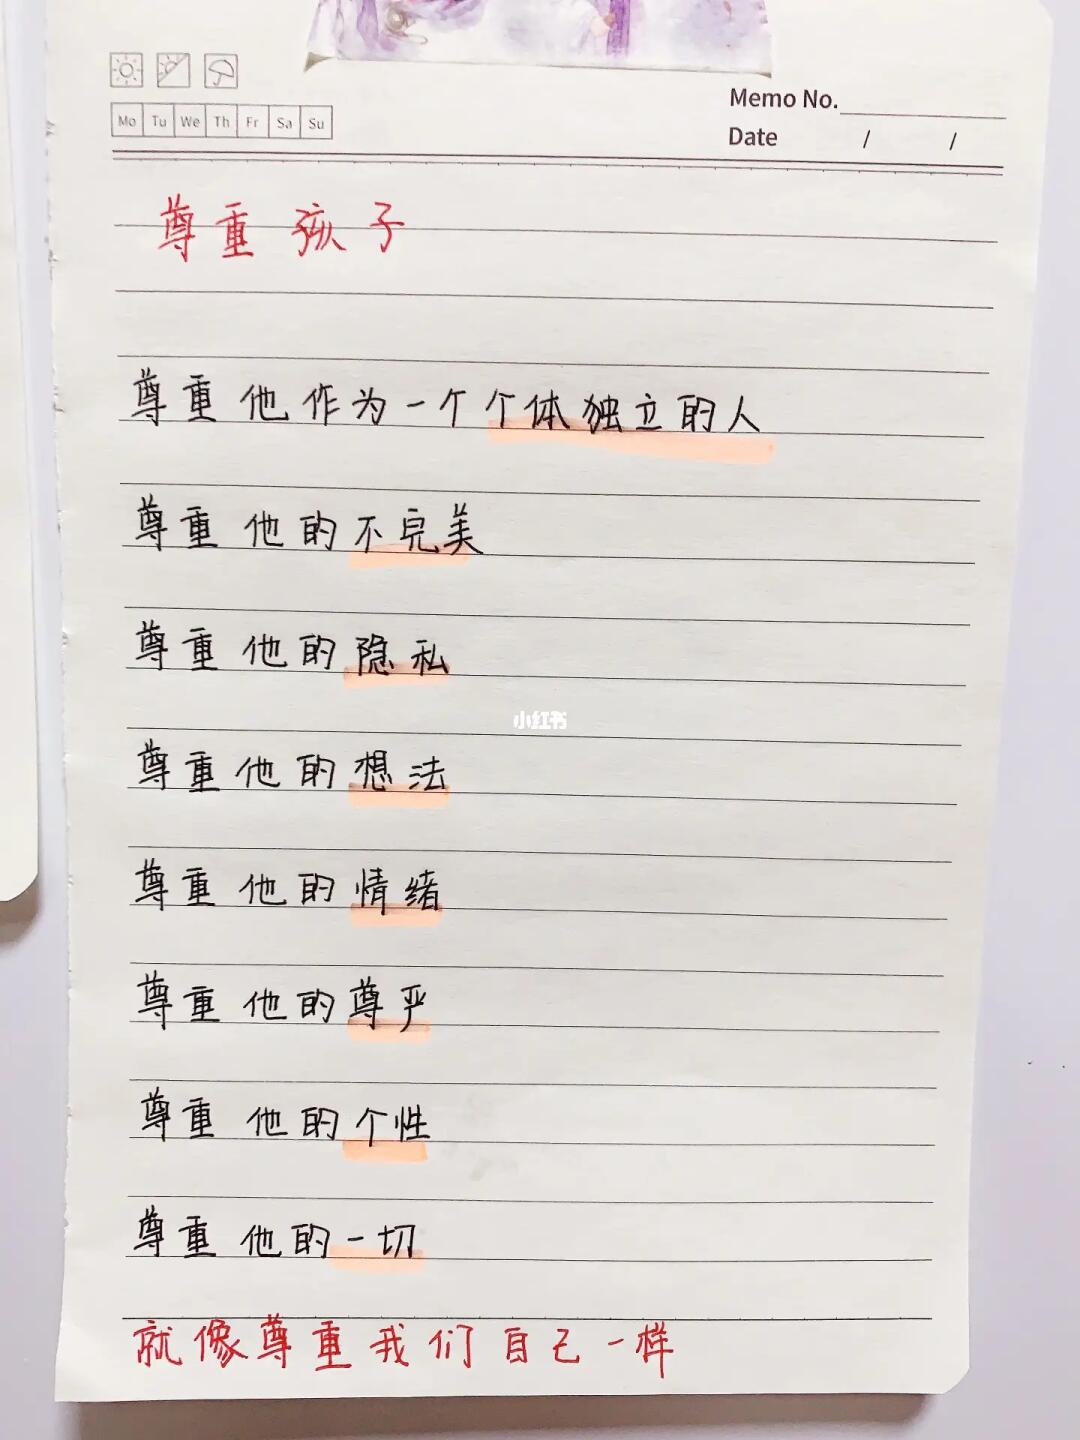 Memo No.
Mo Tu We Th Fr Sa Su
Date / /
尊重孩子
尊重他作为一个个体独立的人
尊重他的不完美
尊重他的隐私
小红书
尊重他的想法
尊重他的情绪
尊重他的尊严
尊重他的个性
尊重他的一切
就像尊重我们自己一样